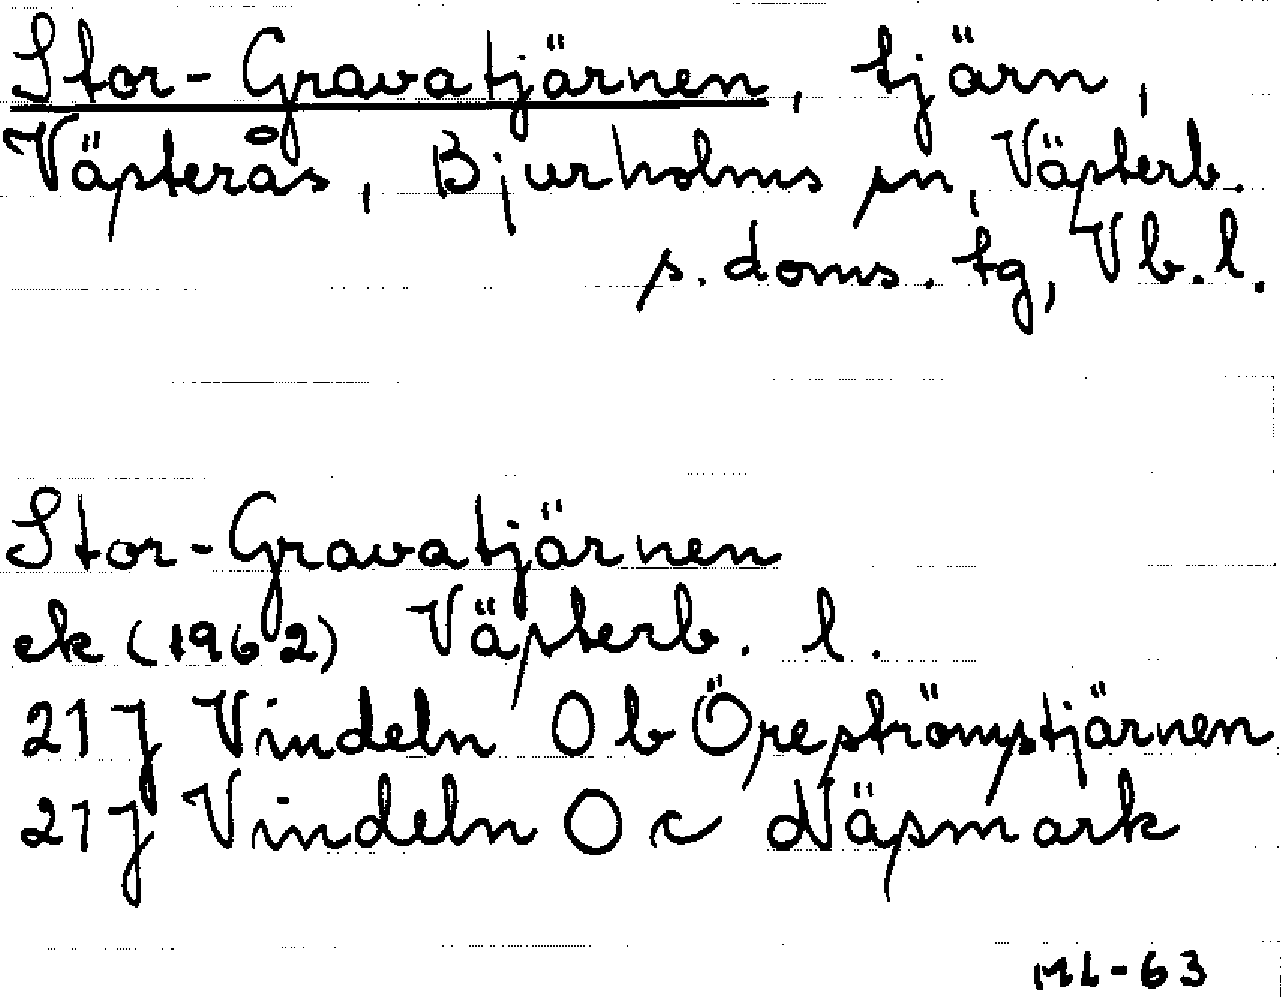 Stor-Gravatjärnen, tjärn,
Västerås, Bjurholms sn, Västerb.
s. doms. tg, Vb. l.
Stor-Gravatjärnen
ek (1962) Västerb. l.
21 J Vindeln 0 b Öreströmstjärnen
21 J Vindeln 0 c Näsmark
ML-63